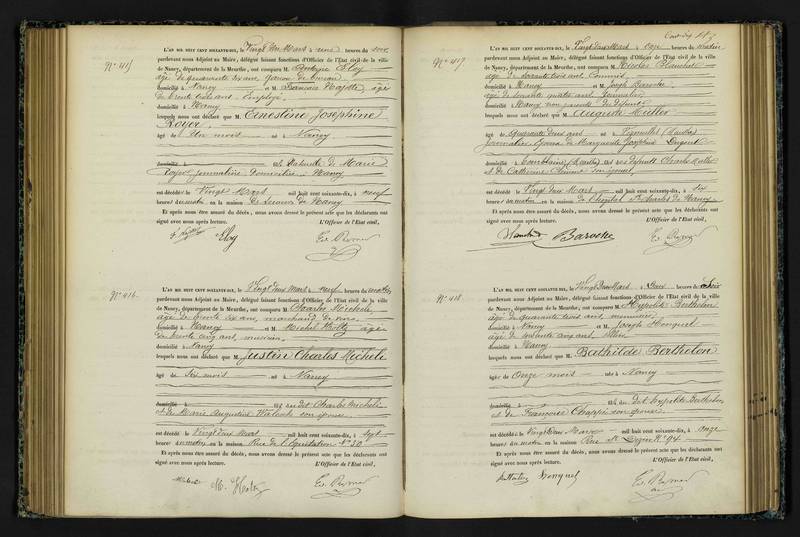 N° 415
L'AN MIL HUIT CENT SOIXANTE-DIX, le Vingt deux Mars à onze heures du
pardevant nous Adjoint au Maire, délégué faisant fonctions d'Officier de l'Etat civil de la ville
de Nancy, département de la Meurthe, ont comparu M. Eloy
âgé de quarante six ans, garçon de bureau
domicilié à Nancy et M. François âgé
de trente trois ans employé,
domicilié à Nancy
lesquels nous ont déclaré que M. Ernestine Joséphine
Royer.
âgé de Un mois né à Nancy
domicilié à naturelle de Marie
Royer journalière domiciliée à Nancy
est décédé le Vingt Mars mil huit cent soixante-dix, à neuf
heures du matin en la maison de secours de Nancy
Et après nous être assuré du décès, nous avons dressé le présent acte que les déclarants ont
signé avec nous après lecture. L'Officier de l'Etat civil,
Eloy
N° 416.
L'AN MIL HUIT CENT SOIXANTE-DIX, le Vingt deux Mars à neuf heures du matin
pardevant nous Adjoint au Maire, délégué faisant fonctions d'Officier de l'Etat civil de la ville
de Nancy, département de la Meurthe, ont comparu M. Charles Micheli
âgé de trente six ans, marchand de vins
domicilié à Nancy et M. Michel âgé
de trente cinq ans, musicien
domicilié à Nancy
lesquels nous ont déclaré que M. Justin Charles Micheli
âgé de Six mois né à Nancy
domicilié à fils dudit Charles Micheli
et de Marie Augustine son épouse
est décédé le Vingt deux Mars mil huit cent soixante-dix, à sept
heures du matin en la maison Rue de l'Equitation N° 20
Et après nous être assuré du décès, nous avons dressé le présent acte que les déclarants ont
signé avec nous après lecture. L'Officier de l'Etat civil,
N° 417
L'AN MIL HUIT CENT SOIXANTE-DIX, le Vingt deux Mars à onze heures du matin
pardevant nous Adjoint au Maire, délégué faisant fonctions d'Officier de l'Etat civil de la ville
de Nancy, département de la Meurthe, ont comparu M. Nicolas
âgé de soixante trois ans Commis
domicilié à Nancy et M. Joseph Baroche
âgé de soixante quatre ans, Journalier
domicilié à Nancy non parents du défunt
lesquels nous ont déclaré que M. Auguste Muller
âgé de quarante deux ans né à
Journalier époux de Marguerite Joséphine
domicilié à fils de défunts Charles Muller
et de Catherine son épouse
est décédé le Vingt deux Mars mil huit cent soixante-dix, à six
heures du matin en la maison de l'hôpital St Charles de Nancy
Et après nous être assuré du décès, nous avons dressé le présent acte que les déclarants ont
signé avec nous après lecture. L'Officier de l'Etat civil,
Baroche
N° 418
L'AN MIL HUIT CENT SOIXANTE-DIX, le Vingt deux Mars à deux heures du soir
pardevant nous Adjoint au Maire, délégué faisant fonctions d'Officier de l'Etat civil de la ville
de Nancy, département de la Meurthe, ont comparu M. Hippolite Berthelon
âgé de quarante trois ans, menuisier
domicilié à Nancy et M. Joseph Honquel
âgé de soixante cinq ans,
domicilié à Nancy
lesquels nous ont déclaré que M. Bathilde Berthelon
âgée de Onze mois née à Nancy
domicilié à fille du dit Hippolite Berthelon
et de Françoise Chappé son épouse
est décédé le Vingt deux Mars mil huit cent soixante-dix, à onze
heures du matin en la maison Rue St Dizier N° 94
Et après nous être assuré du décès, nous avons dressé le présent acte que les déclarants ont
signé avec nous après lecture. L'Officier de l'Etat civil,
Berthelon Honquel